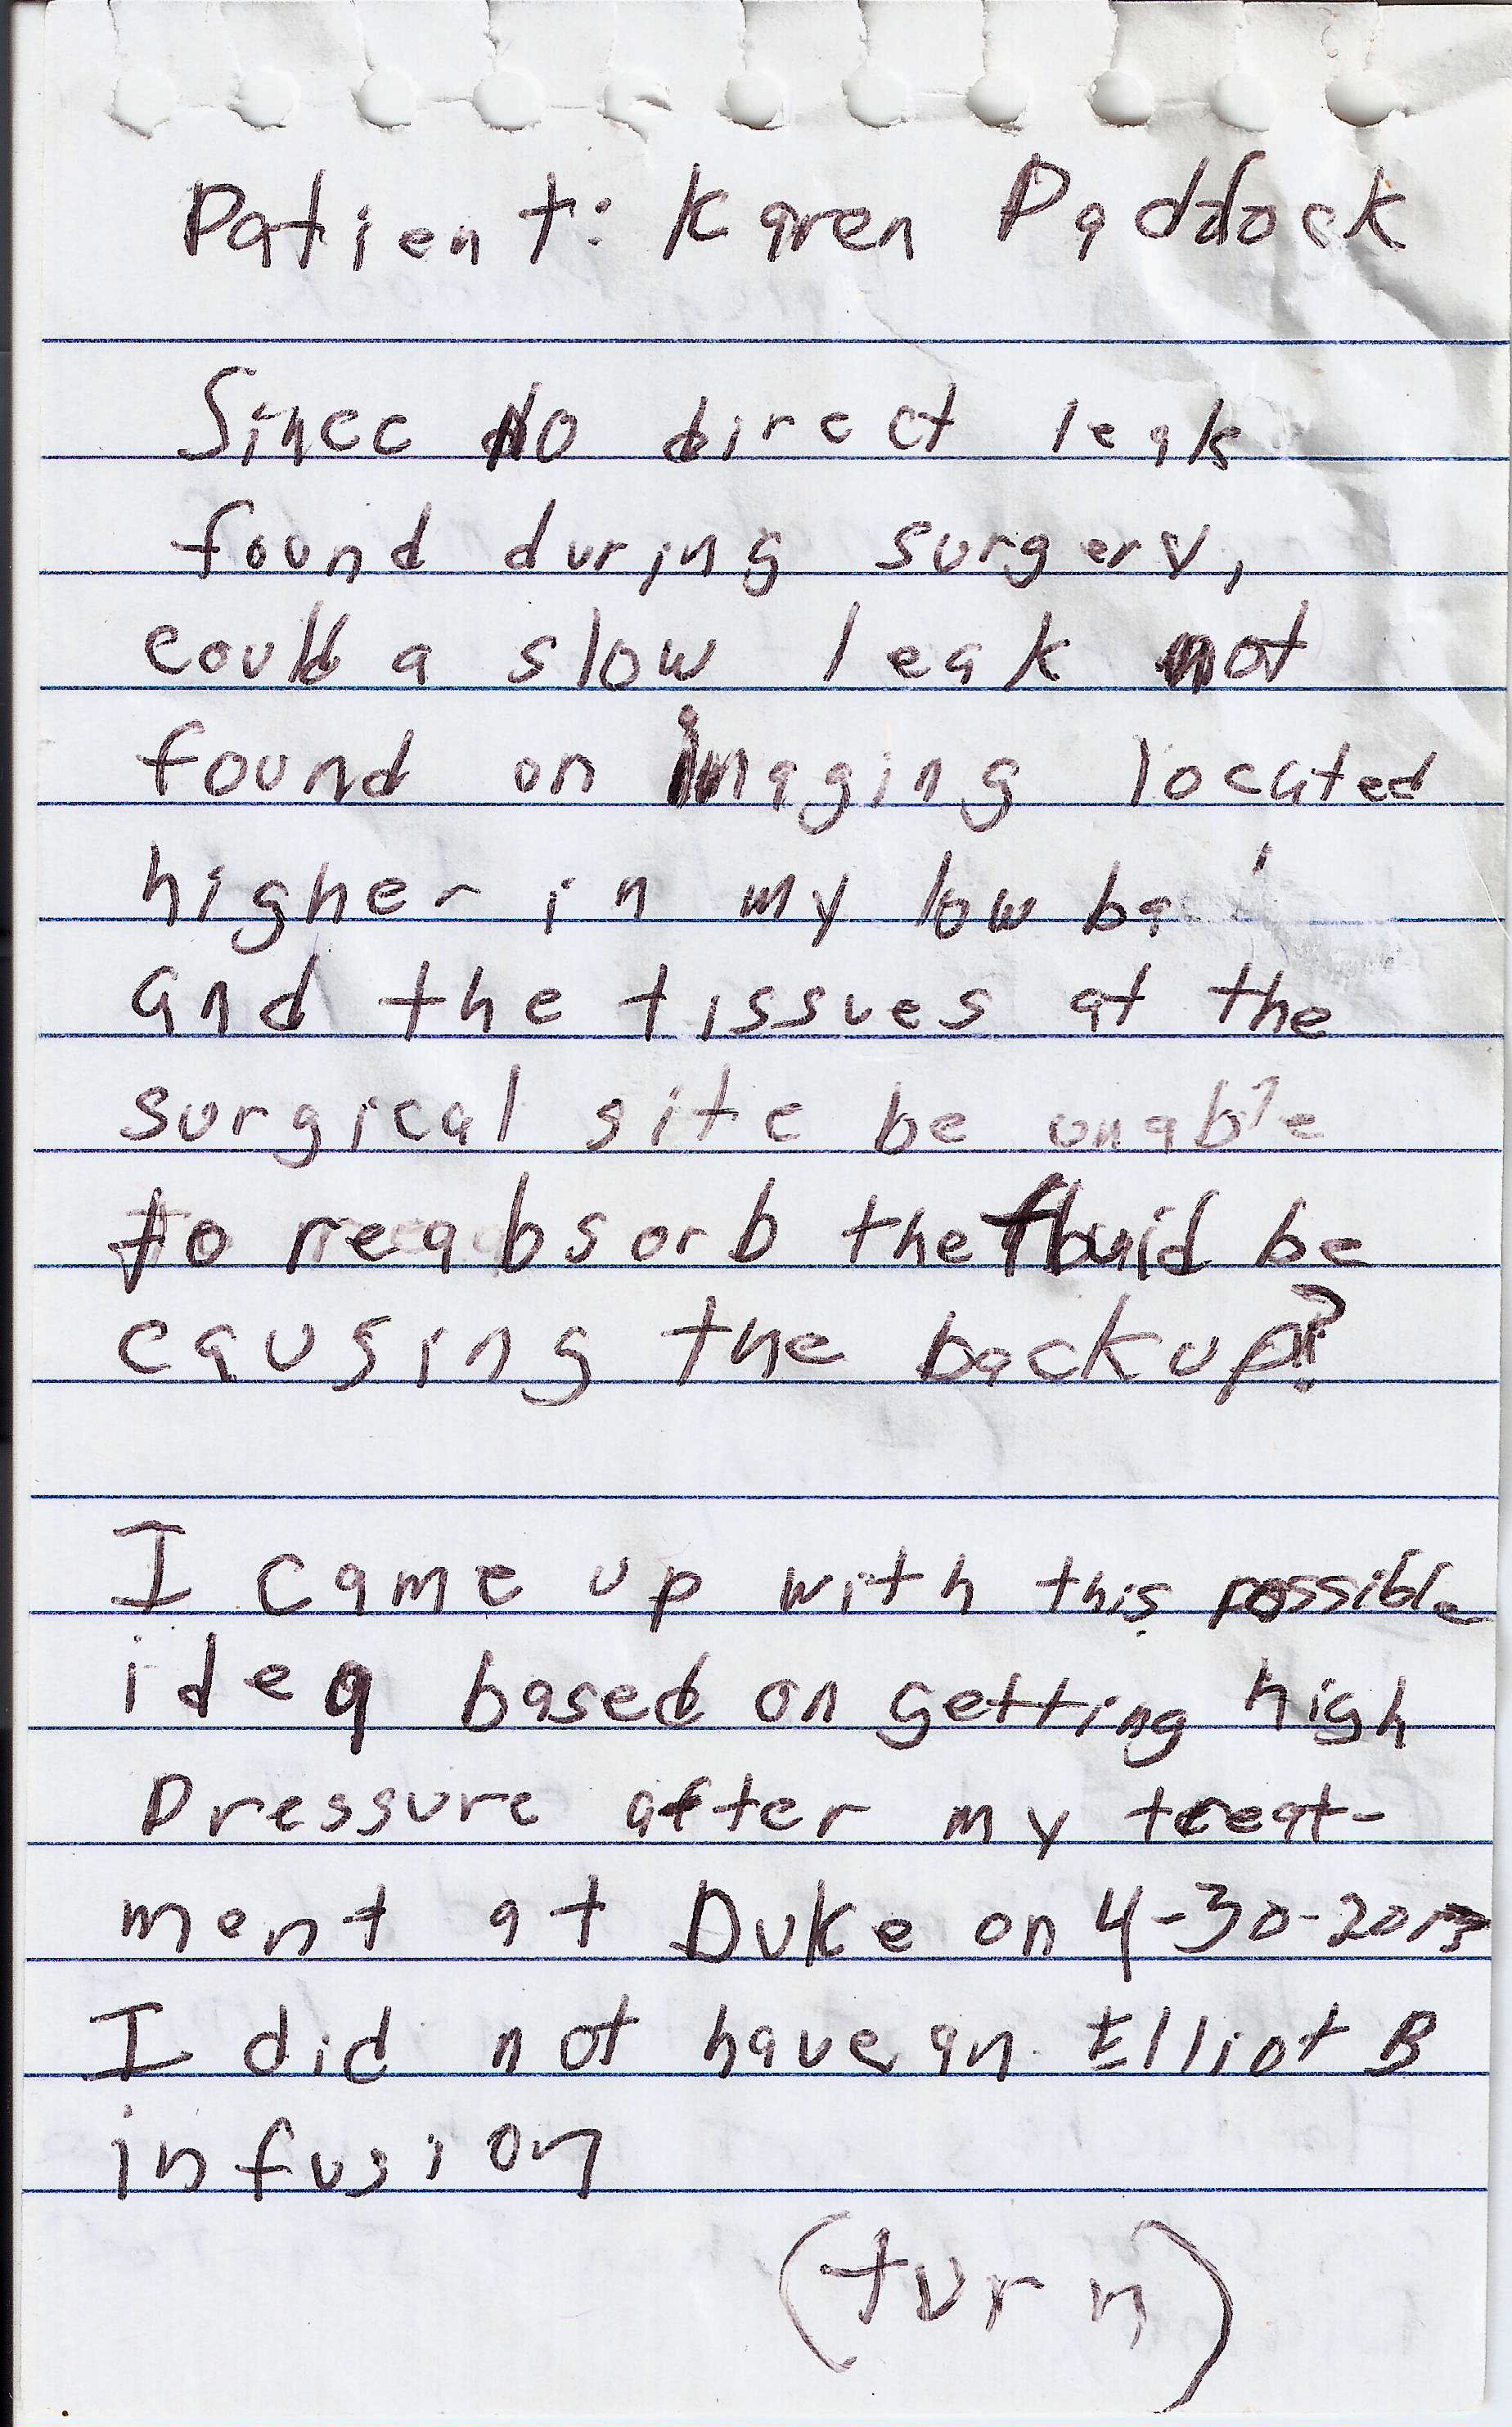 Patient: Karen Paddock
Since No direct leak
found during surgery,
could a slow leak not
found on imaging located
higher in my low
and the tissues at the
surgical site be unable
to reabsorb the fluid be
causing the backup?
I came up with this possible
idea based on getting high
Pressure after my treat-
ment at Duke on 4-30-2013
I did not have an Elliot B
infusion
(turn)